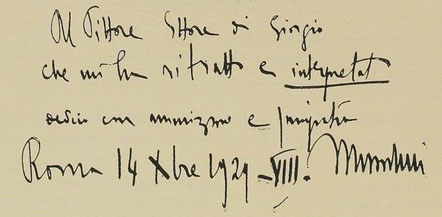 Al Pittore Ettore di Giorgio
che mi ha ritratto e interpretato
dedico con ammirazione e simpatia
Roma 14 Xbre 1929 - VIII. Mussolini